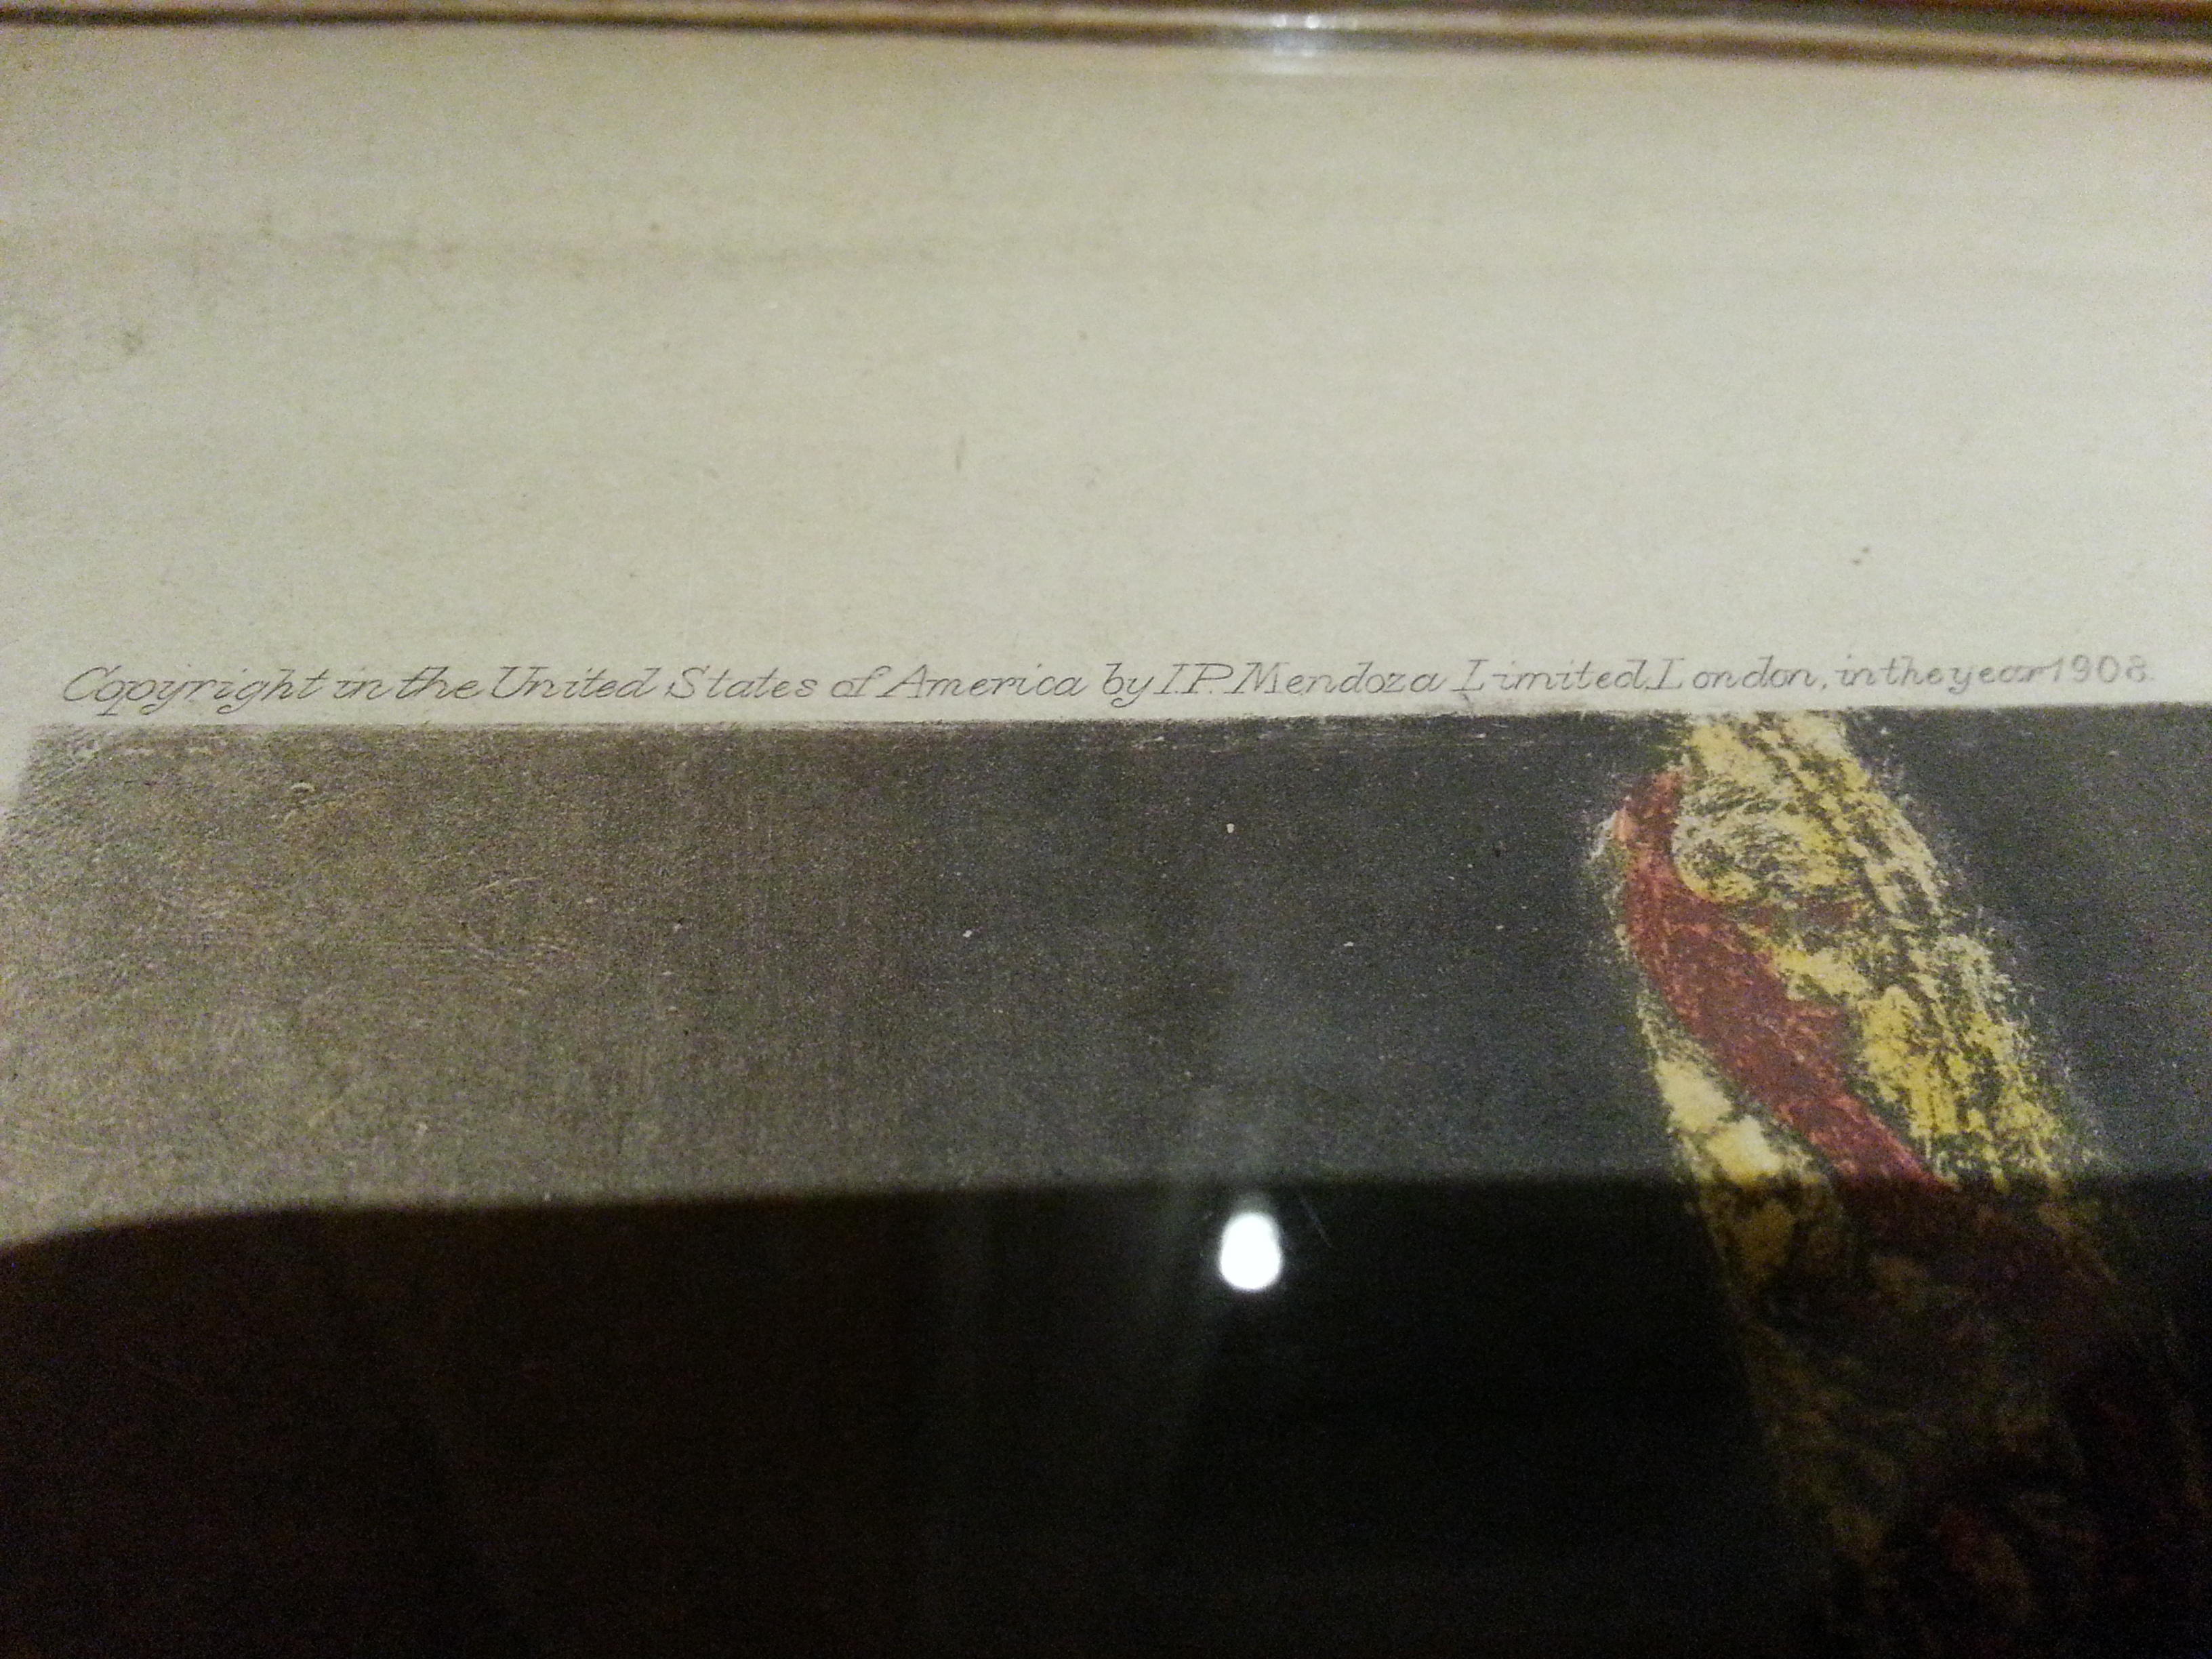 Copyright in the United States of America by I.P. Mendoza Limited, London, in the year 1908.